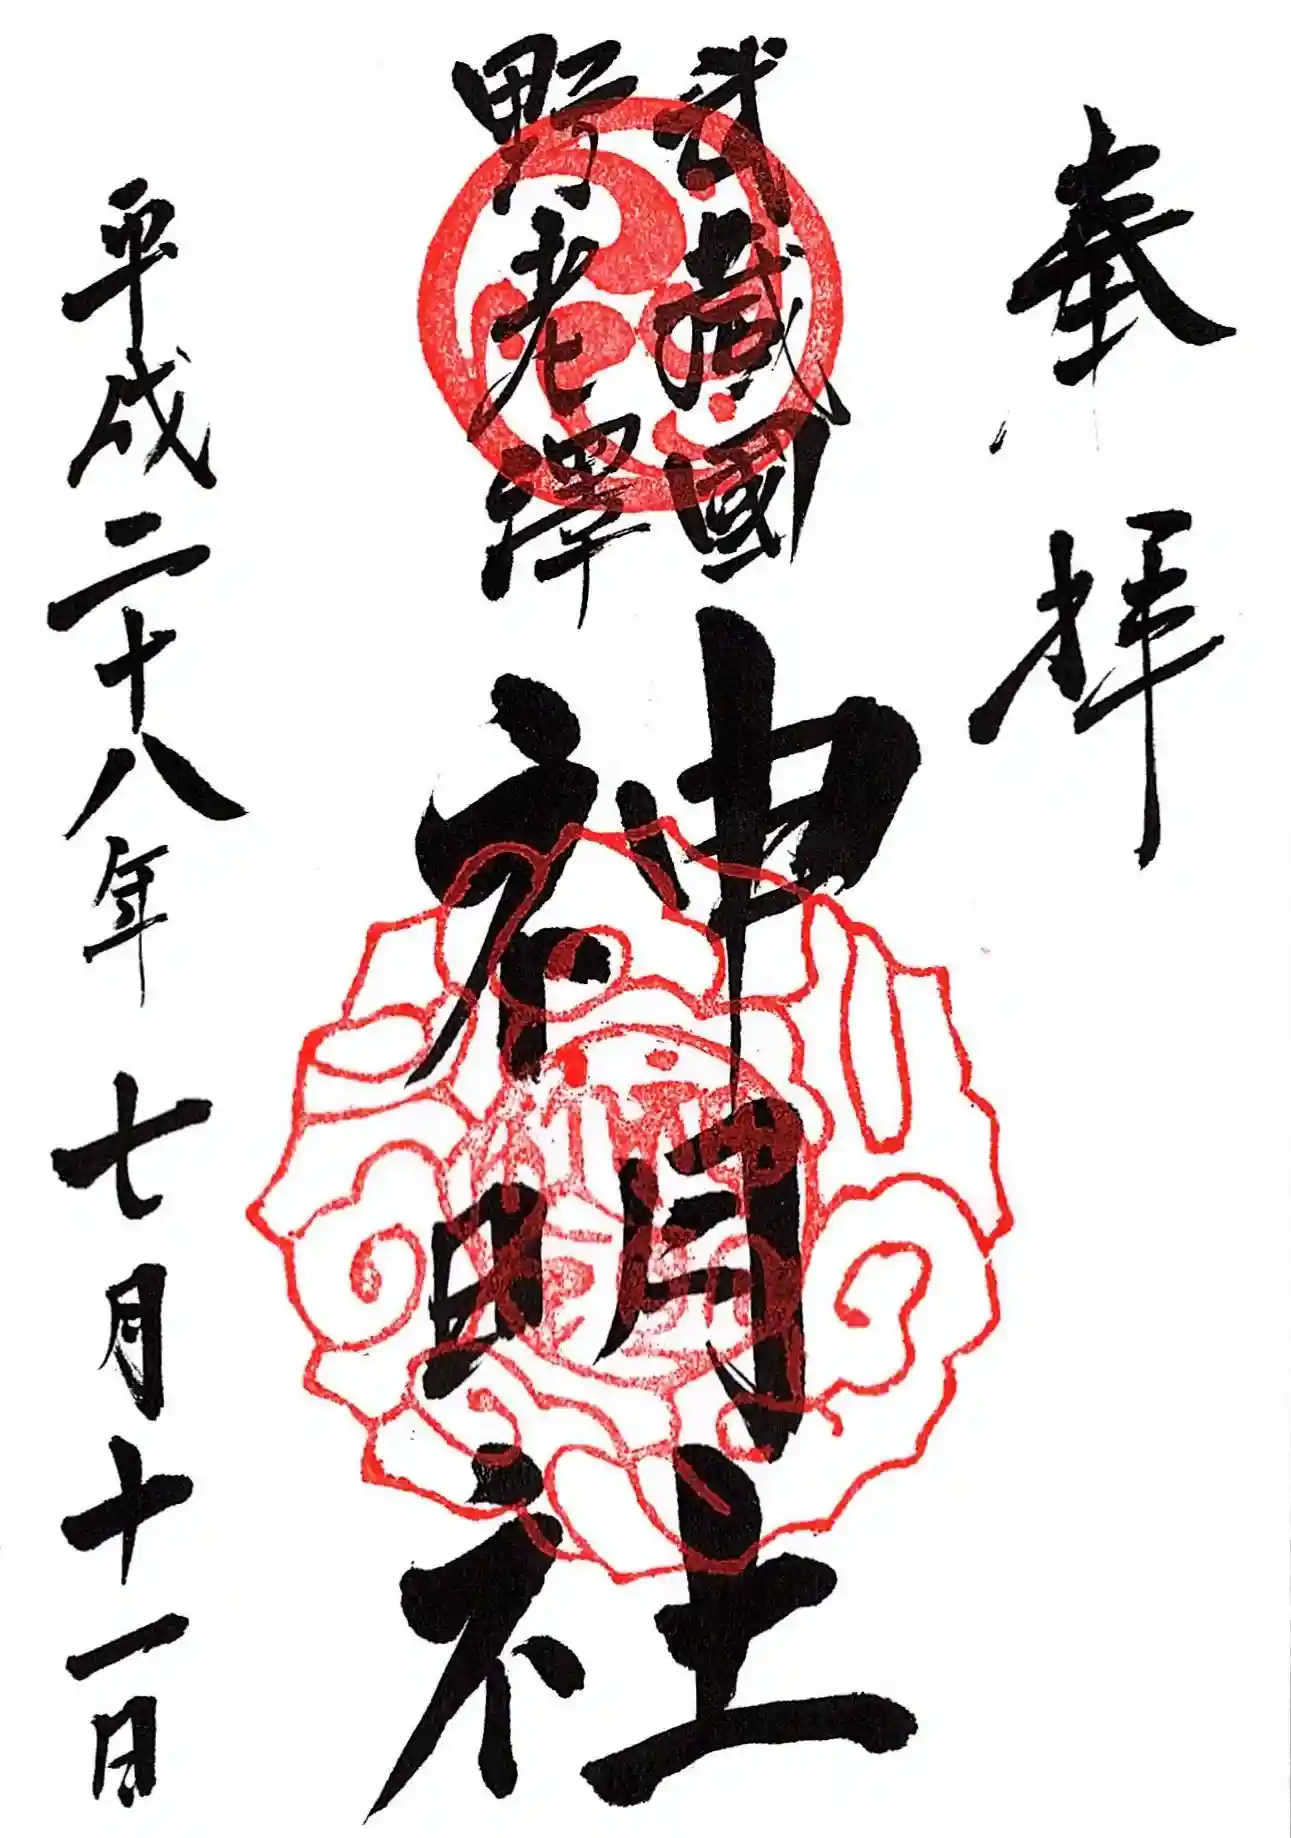 奉拝
武藏國
野老澤
神明社
平成二十八年七月十一日